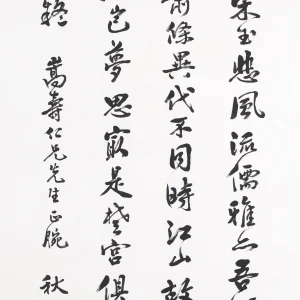 宋玉悲風流儒雅亦吾
蕭條異代不同時江山故
豈夢思最是楚宮俱
疑 嵩壽仁兄先生正腕 秋